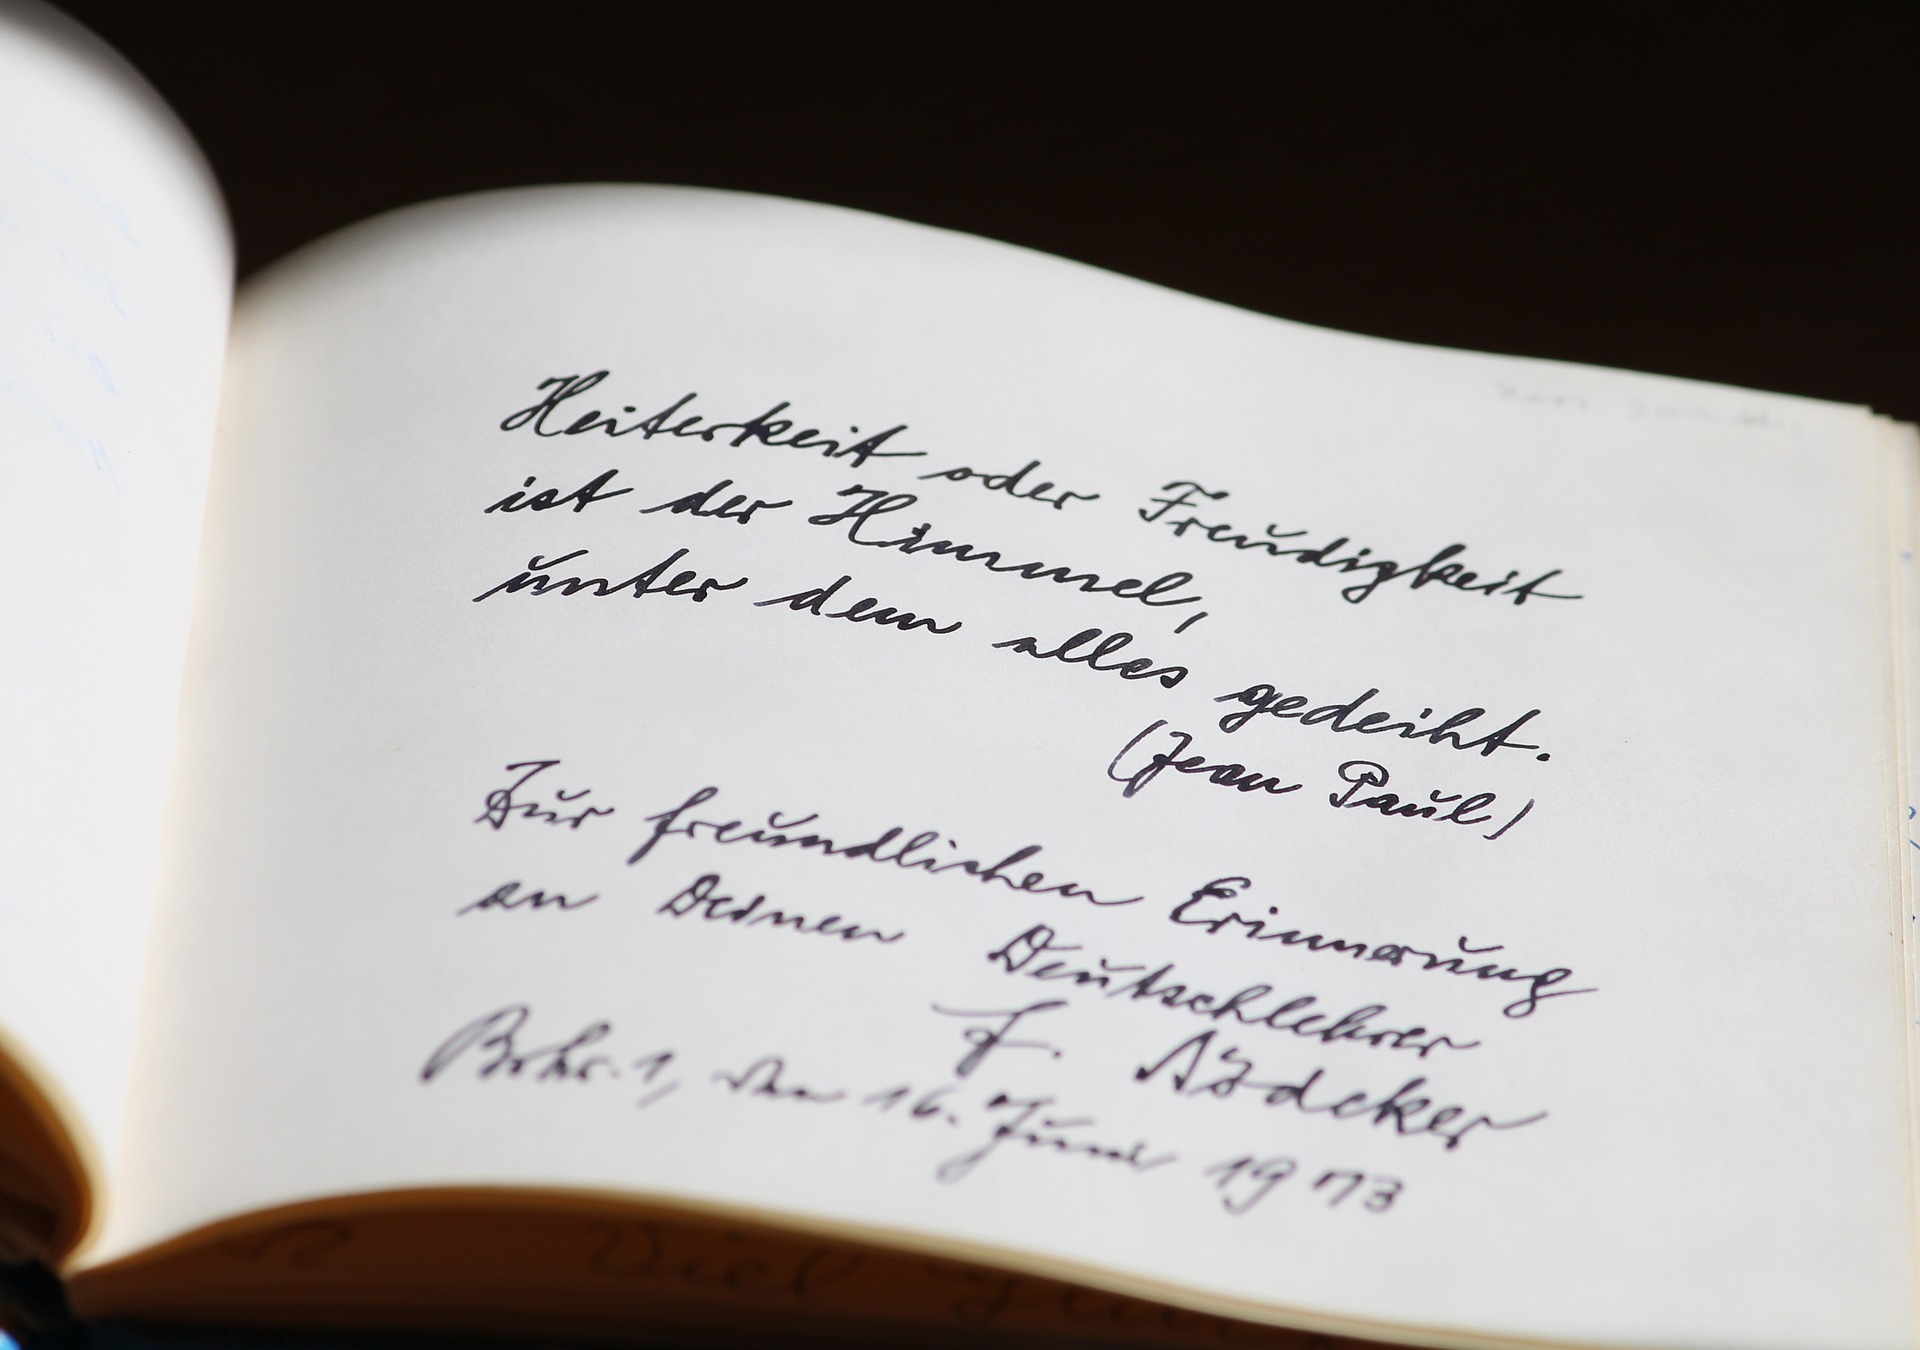 Heiterkeit oder Freudigkeit
ist der Himmel,
unter dem alles gedeiht.
(Jean Paul)
Zur freundlichen Erinnerung
an Deinen Deutschlehrer
F.
den 16. Juni 1973
Viel